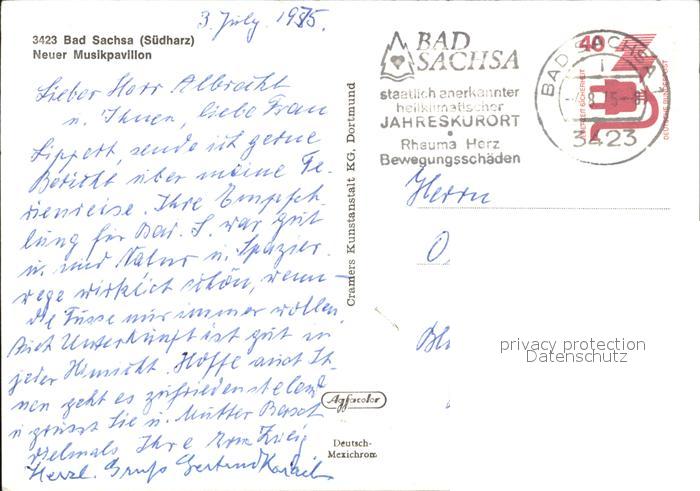 3423 Bad Sachsa (Südharz)
Neuer Musikpavillon
3. July. 1975.
Lieber Herr Albracht
u. Ihnen, liebe Frau
Lippert, sende ich gerne
Bericht über meine Fe-
rienreise. Ihre Empfeh-
lung für Bad. S. war gut
u. sind Natur u. Spazier-
wege wirklich schön, wenn
die Füsse nur immer wollen.
Auch Unterkunft ist gut in
jeder Hinsicht. Hoffe auch Ih-
nen geht es zufriedenstelend
u grüsst Sie u. Mutter
vielmals Ihre
Herzl. Gruß Gertrud
Cramers Kunstanstalt KG. Dortmund
Agfacolor
Deutsch-
Mexichrom
BAD
SACHSA
staatlich anerkannter
heilklimatischer
JAHRESKURORT
Rheuma Herz
Bewegungsschäden
BAD SACHSA
3423
40
DEUTSCHE BUNDESPOST
Herrn
privacy protection
Datenschutz